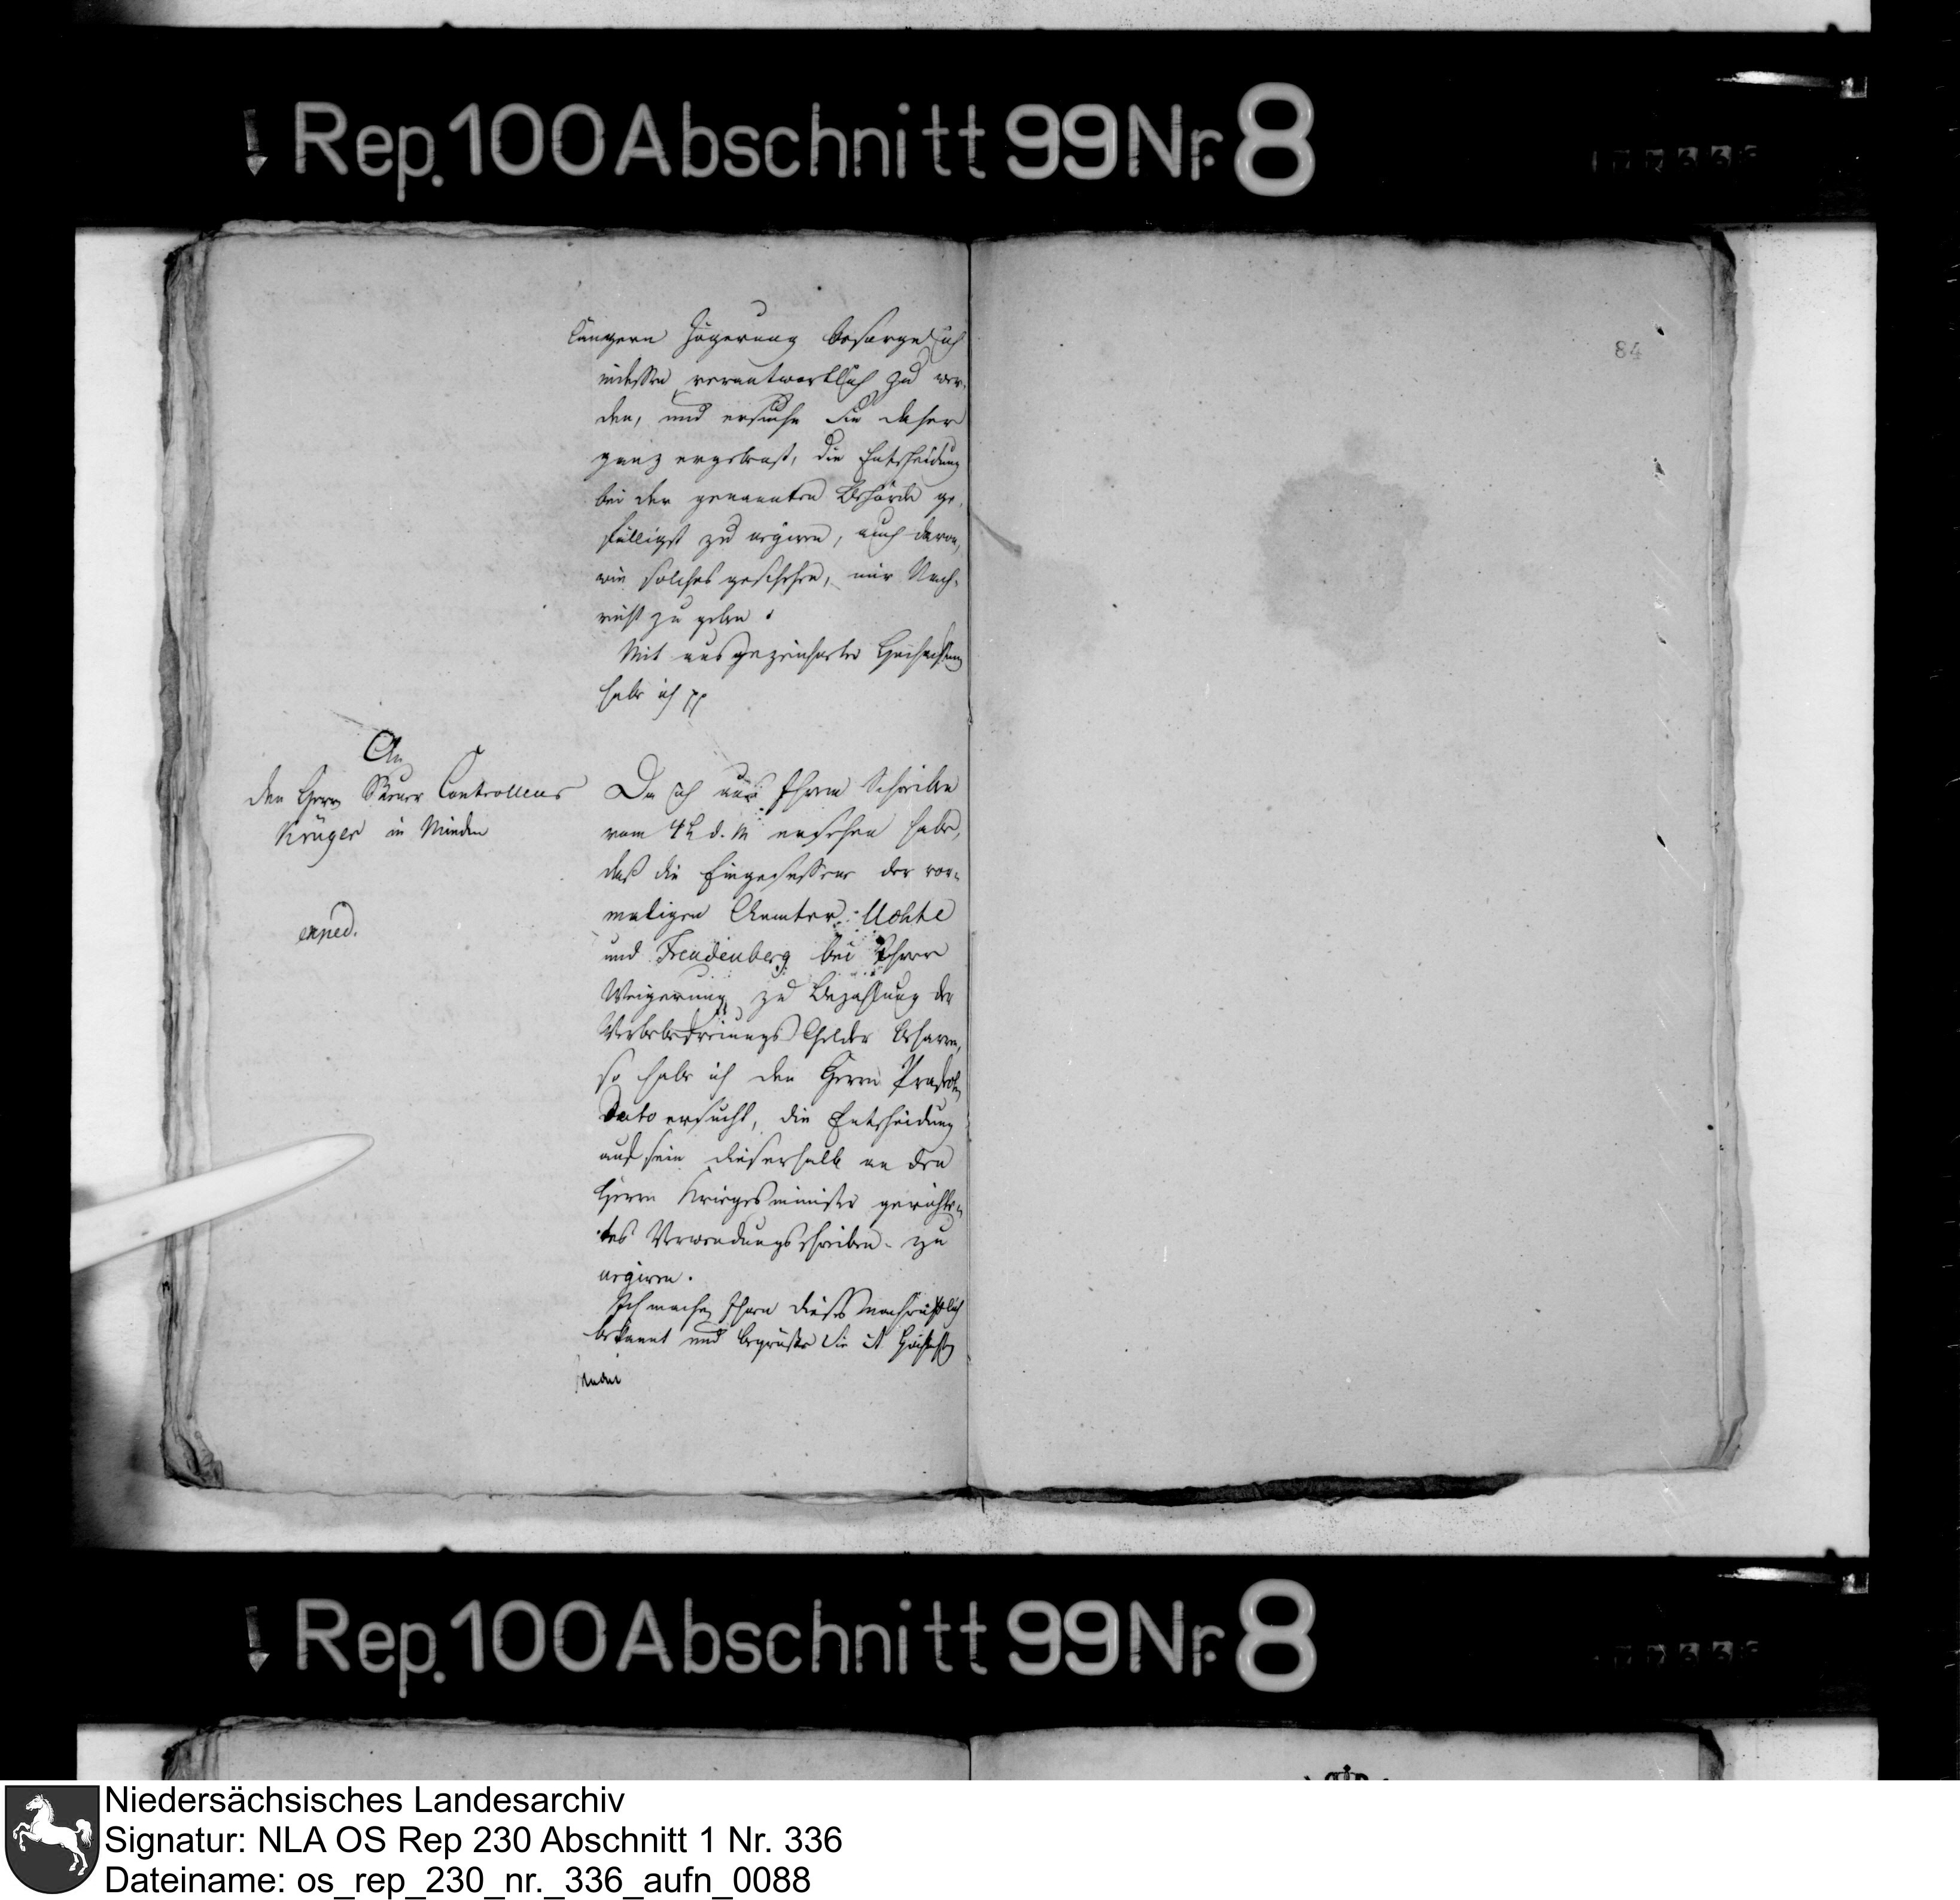 Rep. 100 Abschnitt 99 Nr. 8
84
längern Zögerung besorge ich
indessen verantwortlich zu wer-
den, und ersuche Sie daher
ganz ergebenst, die Entscheidung
bei der genannten Behörde ge-
fälligst zu urgiren, auch davon,
wie solches geschehen, mir Nach-
richt zu geben.
Mit ausgezeichneter Hochachtung
habe ich pp
An
den Herrn Steuer Controlleur
Krüger in Minden
exped.
Da ich aus Ihrem Schreiben
vom d. M ersehen habe,
daß die Eingesessene der vor-
maligen Aemter Uchte
und Freudenberg bei Ihrer
Weigerung zu Bezahlung der
Gelder beharren,
so habe ich den Herrn
Dato ersucht, die Entscheidung
auf sein dieserhalb an den
Herrn Kriegsminister gerichte-
tes Verwendungsschreiben zu
urgiren.
Ich mache Ihnen dieses nachrichtlich
bekannt und begrüße Sie
Rep. 100 Abschnitt 99 Nr. 8
Niedersächsisches Landesarchiv
Signatur: NLA OS Rep 230 Abschnitt 1 Nr. 336
Dateiname: os_rep_230_nr._336_aufn_0088